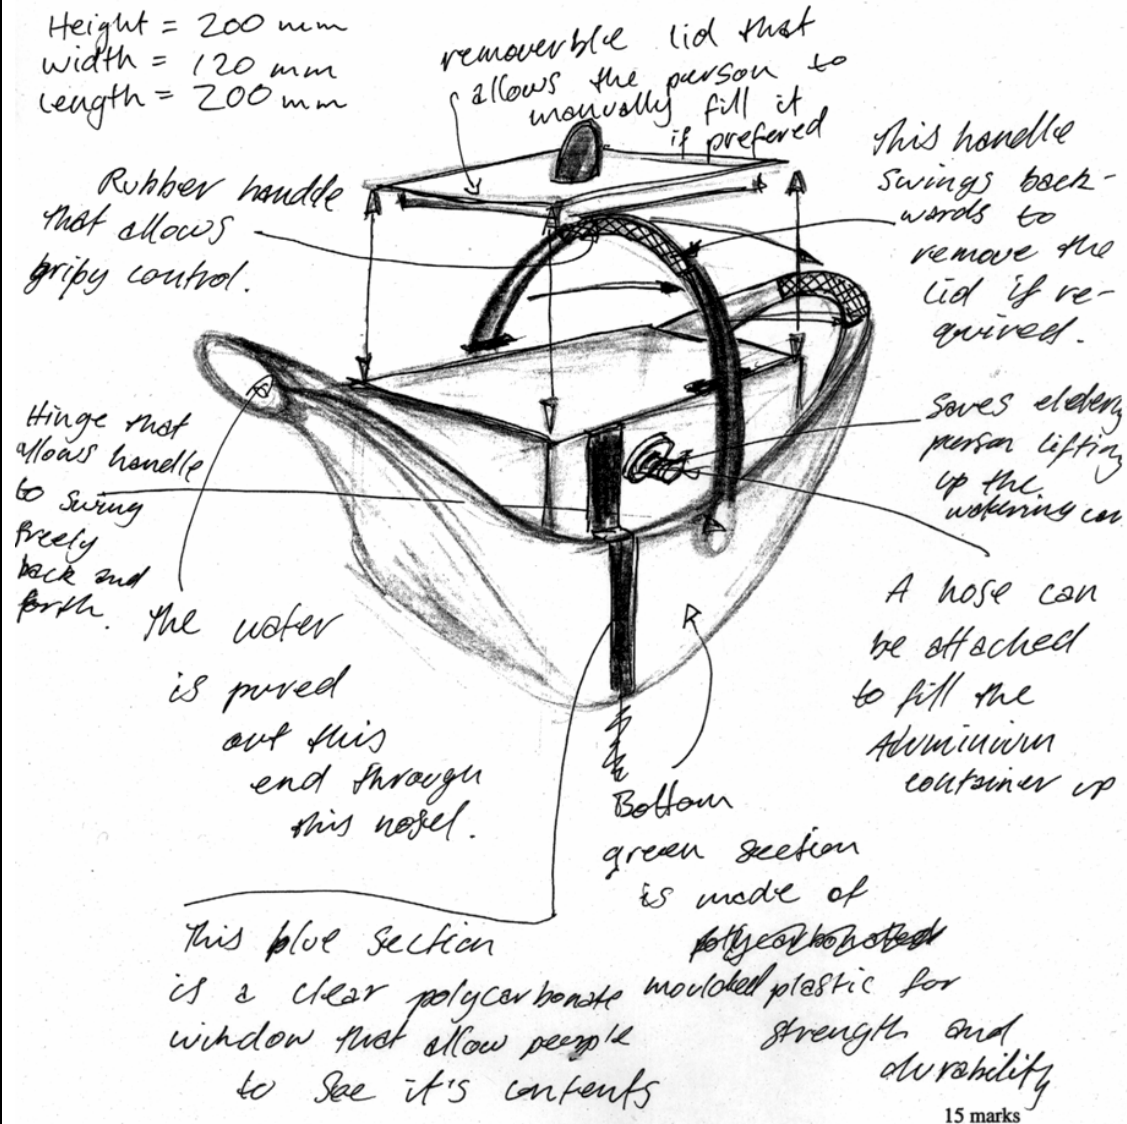 Height = 200 mm
width = 120 mm
Length = 200 mm
removerble lid that
allows the person to
manually fill it
if prefered
This handle
swings back-
words to
remove the
lid if re-
quired.
Rubber handle
that allows
gripy control.
Hinge that
allows handle
to swing
freely
back and
forth.
Saves elderly
person lifting
up the
watering can
A hose can
be attached
to fill the
Aluminium
container up
The water
is pured
out this
end through
this nosel.
Bottom
green section
is made of
polycarbonated
moulded plastic for
strength and
durability
This blue section
is a clear polycarbonate
window that allow people
to see it's contents
15 marks